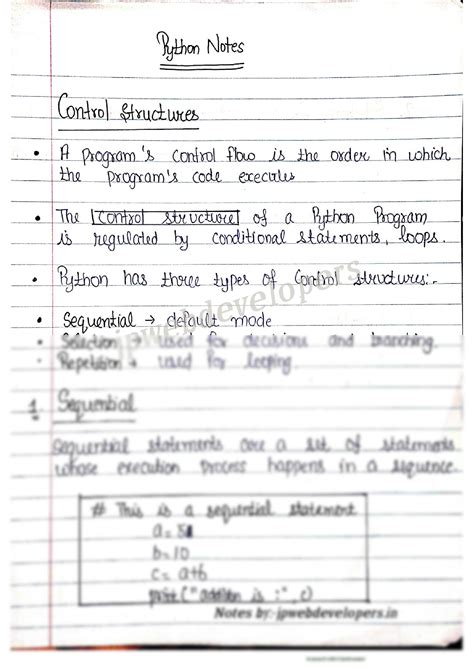 Python Notes
Control Structures
• A program's control flow is the order in which
the program's code executes
• The control structure of a Python Program
is regulated by conditional statements, loops.
• Python has three types of control structures:-
jpwebdevelopers
• Sequential → default mode
• Selection → used for decisions and branching.
• Repetition → used for looping.
1. Sequential
Sequential statements are a set of statements
whose execution process happens in a sequence.
# This is a sequential statement
b=10
c= a+b
print("addition is :", c)
Notes by:-jpwebdevelopers.in